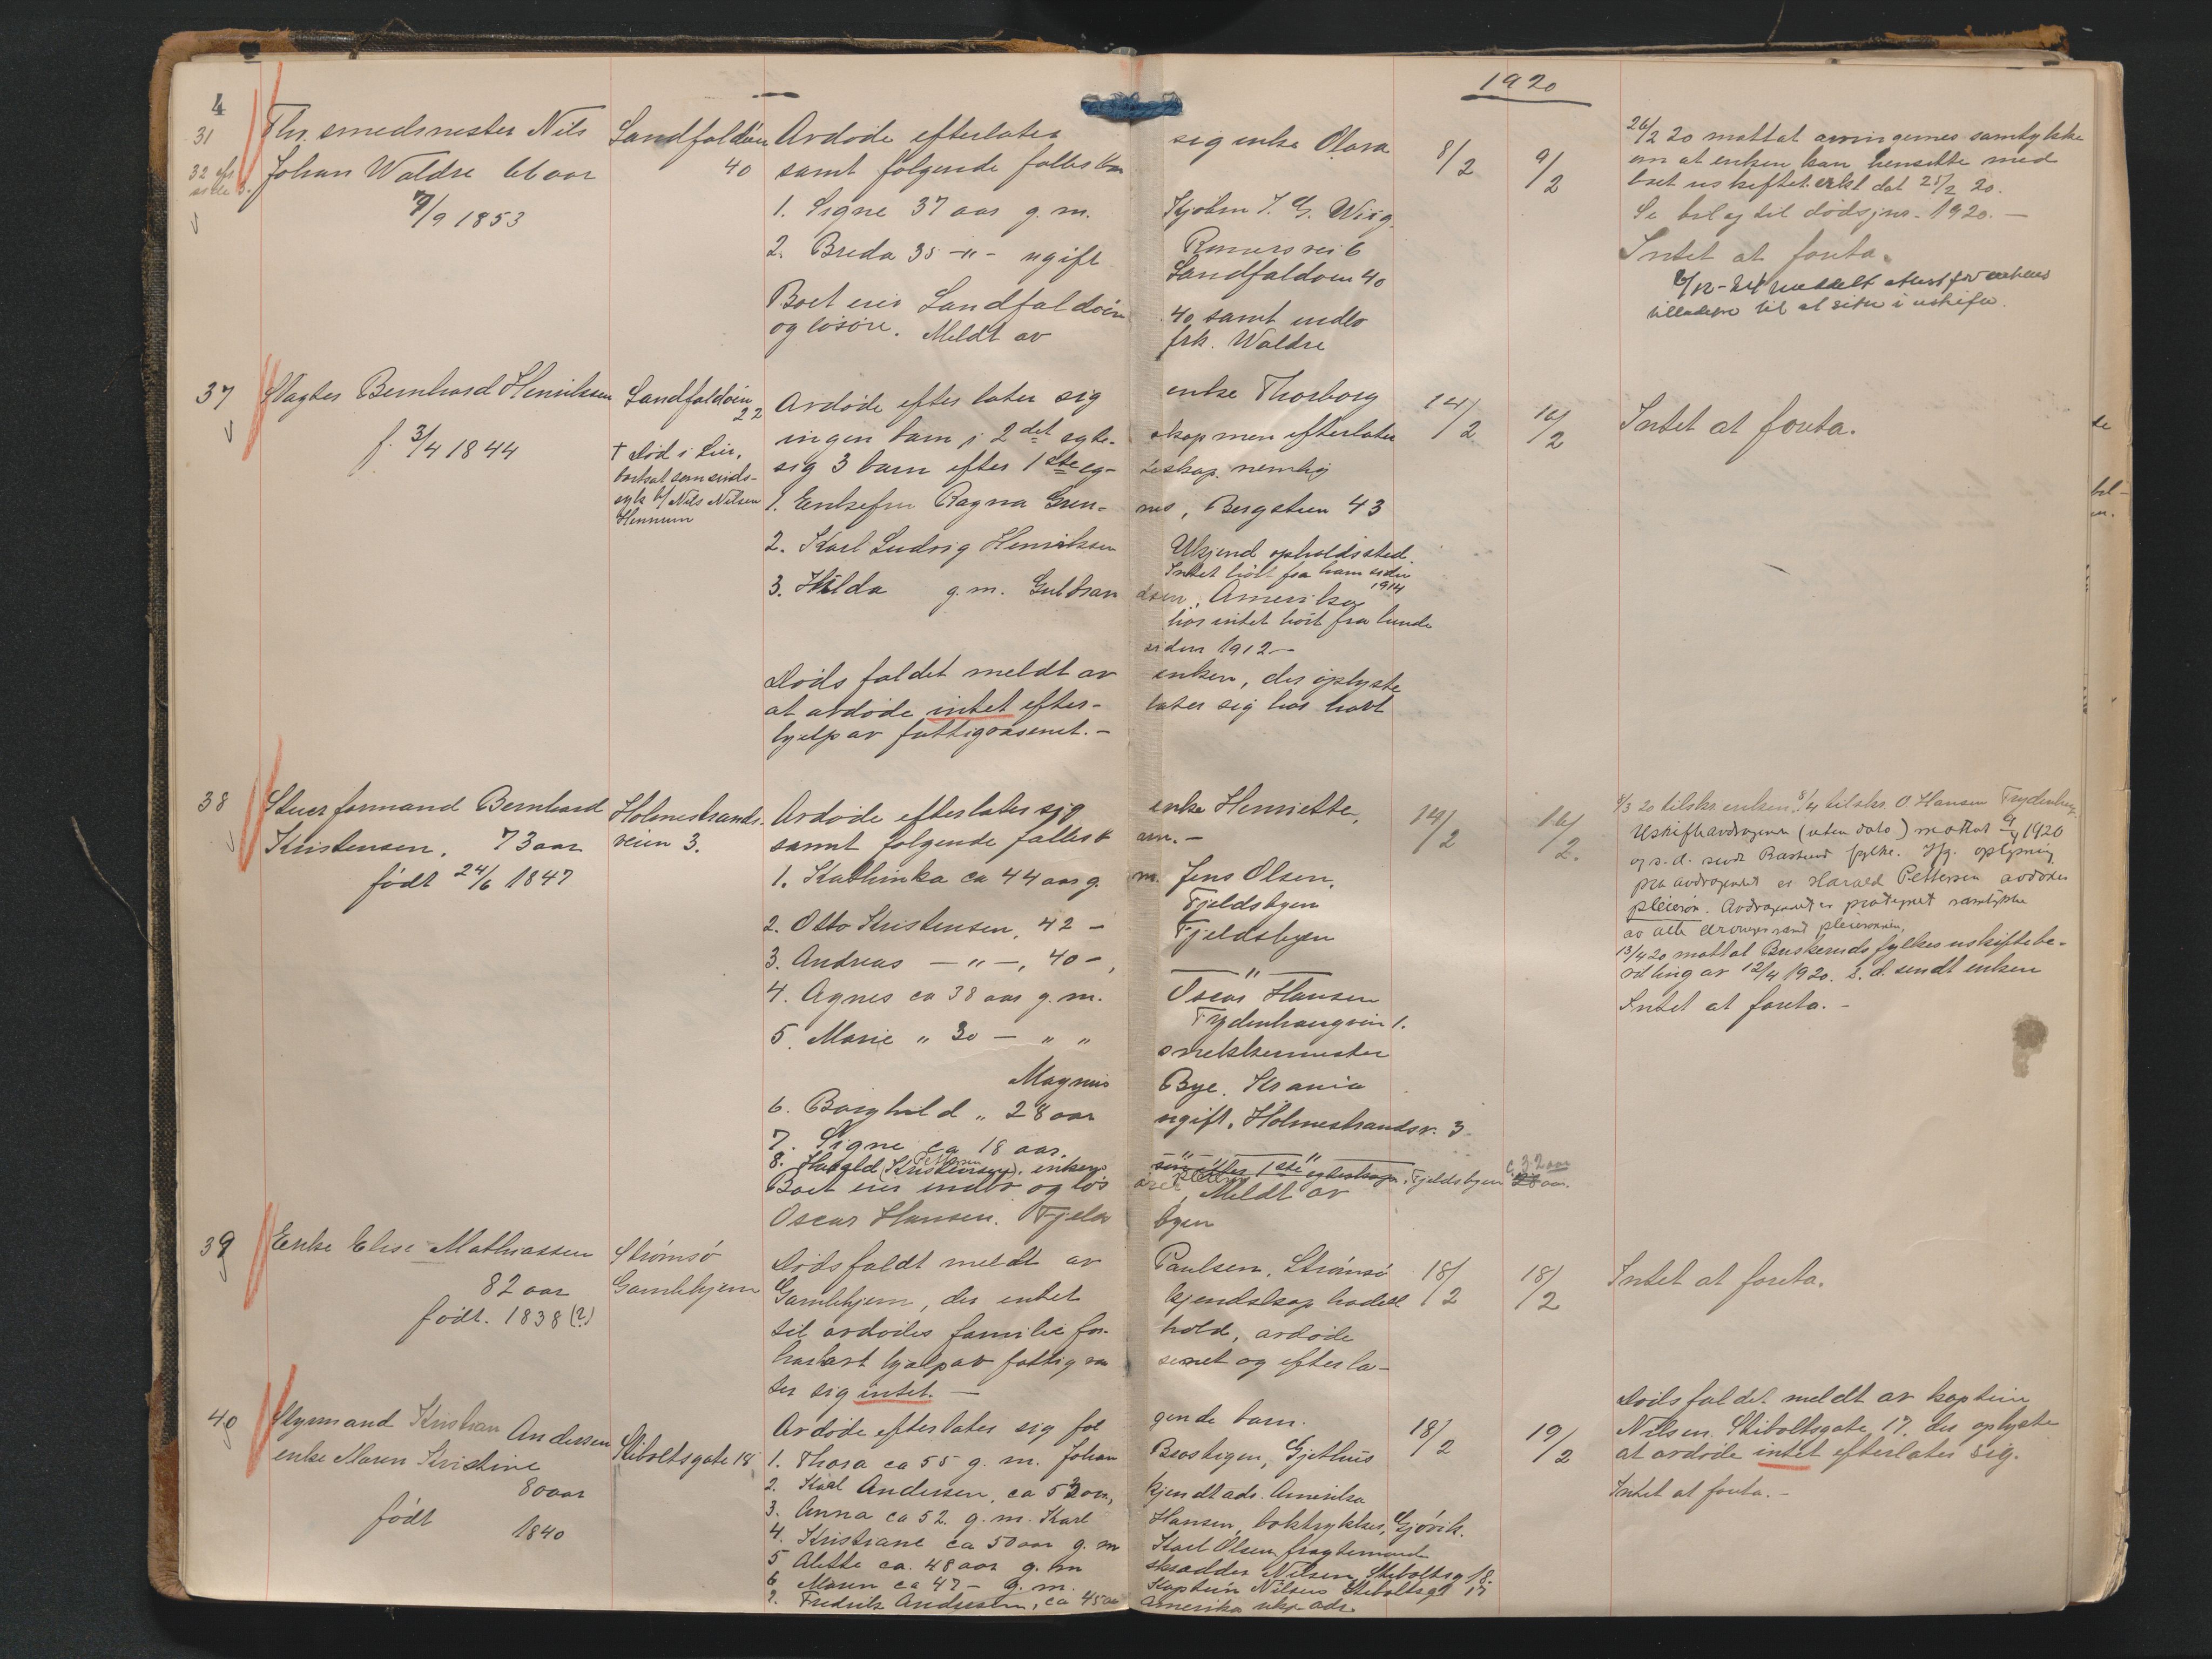 4
1920
31 Fhv. smedmester Nils
32 efr side 3. Johan Waldre 66 aar
7/9 1853
Landfaldöen 40
Avdöde efterlater sig enke Olava
samt fölgende fælles barn
1. Signe 37 aar g. m. Kjobm J. G. Wiig
Rømersvei 6
2. Breda 35 -"- ugift Landfaldöen 40
Boet eier Landfaldöen 40 samt indbo
og lösöre. Meldt av frk. Waldre
8/2 9/2
26/2 20 mottat arvingernes samtykke
om at enken kan hensitte med
boet uskiftet. erkl dat 25/2 20.
Se bilag til dödsjnr. 1920. —
Intet at foreta.
attest for enkens
til at sitte i uskifte.
37 Vagter Bernhard Henriksen
f. 3/4 1844
Landfaldöen 22
† Död i Lier,
bortsat som sinds-
syk b/ Nils Nilsen
Hennum
Avdöde efterlater sig enke Thorborg
ingen barn i 2det egte- skap men efterlater
sig 3 barn efter 1ste eg- teskap. nemlig
1. Enkefru Ragna Grun- nes, Bergstien 43
2. Karl Ludvig Henriksen Ukjend opholdssted
Intet hört fra ham siden 1914
3. Hilda g. m. Gulbran dsen, Amerika
har intet hört fra hende
siden 1912 —
Dödsfaldet meldt av enken, der oplyste
at avdöde intet efter- later sig har havt
hjelp av fattigvæsenet. -
14/2 16/2
Intet at foreta.
38 Stuerformand Bernhard
Kristensen. 73 aar
födt 24/6 1847
Holmestrands-
veien 3.
Avdöde efterlater sig enke Henriette,
samt fölgende fælles barn. -
1. Kathinka ca 44 aar g. m. Jens Olsen,
Fjeldsbyen
2. Otto Kristensen, 42 - Fjeldsbyen
3. Andreas -"-, 40 -, — " —
4. Agnes ca 38 aar g. m. Oscar Hansen
Frydenhaugvein 1.
5. Marie " 30 — " " snekkermester
Magnus Bye. Krania
6. Borghild " 28 aar ugift. Holmestrandsv. 3
7. Signe ca 18 aar. — " — " —
8. Harald (Kristensen) Pettersen. enkens sön efter 1ste egteskap. pleiesön, Fjeldsbyen 28 aar. c. 32 aar
Boet eier indbo og lös öre. Meldt av
Oscar Hansen. Fjelds byen
14/2 16/2.
8/3 20 tilskr. enken. 8/4 tilskr. O Hansen Frydenhaug.
Uskifteandragende (uten dato) mottat 9/4 1920
og s. d. sendt Buskerud fylke. Ifg. oplysning
paa andragendet er Harald Pettersen avdödes
pleiesön. Andragendet er paategnet samtykke
av alle arvinger samt pleiesönnen.
13/4 20 mottat Buskeruds fylkes uskiftebe-
villing av 12/4 1920. s. d. sendt enken
Intet at foreta. -
39 Enke Elise Mathiassen
82 aar
födt. 1838 (?)
Strömsö
Gamlehjem
Dödsfaldt meldt av Paulsen, Strömsö
Gamlehjem, der intet kjendskap hadde
til avdödes familie for- hold, avdöde
har havt hjelp av fattigvæ senet og efterla-
ter sig intet. —
18/2 18/2
Intet at foreta.
40 Styrmand Kristian Andersen
enke Maren Kristine
80 aar
födt 1840
Stiboltsgate 18
Avdöde efterlater sig föl gende barn.
1. Thora ca 55 g. m. Johan Brostigen, Gjethus
2. Karl Andersen, ca 53 aar, kjendt adr. Amerika
3. Anna ca 52. g. m. Karl Hansen, boktrykker, Gjövik.
4. Kristiane ca 50 aar g. m Karl Olsen fragtemand
5 Alette ca. 48 aar g. m skrædder Nilsen, Stiboltsg 18.
6 Maren ca 47 - g. m. Kaptein Nilsen Stiboltsgt 17
7. Fredrik Andersen, ca 45 aar Amerika ukj. adr.
18/2 19/2
Dödsfaldet meldt av kaptein
Nilsen. Stiboltsgate 17. der oplyste
at avdöde intet efterlater sig.
Intet at foreta. -